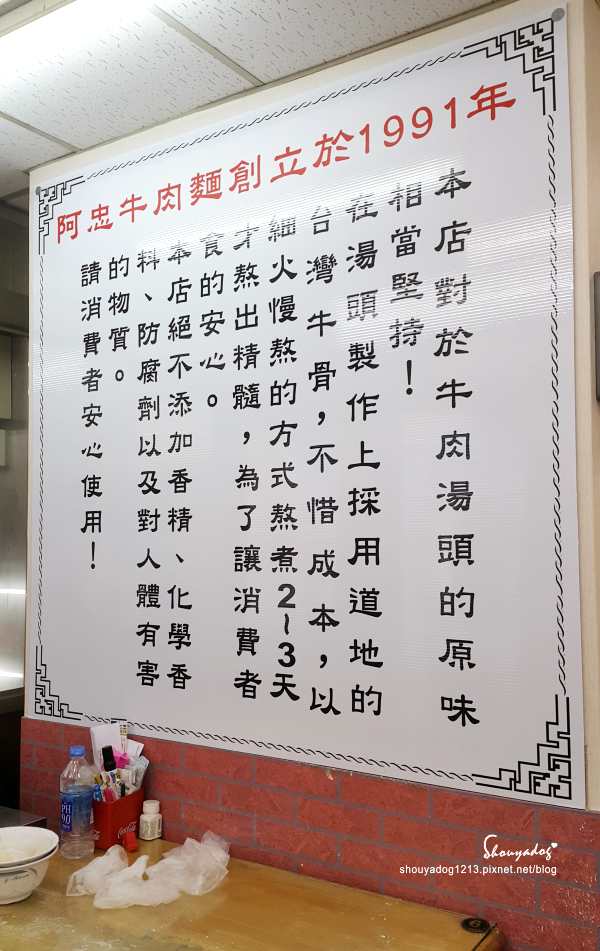 阿忠牛肉麵創立於1991年
本店對於牛肉湯頭的原味
相當堅持！
在湯頭製作上採用道地的
台灣牛骨，不惜成本，以
細火慢熬的方式熬煮2~3天
才熬出精髓，為了讓消費者
食的安心。
本店絕不添加香精、化學香
料、防腐劑以及對人體有害
的物質。
請消費者安心使用！
PH
9.0
Coca-Cola
Shouyadog
shouyadog1213.pixnet.net/blog